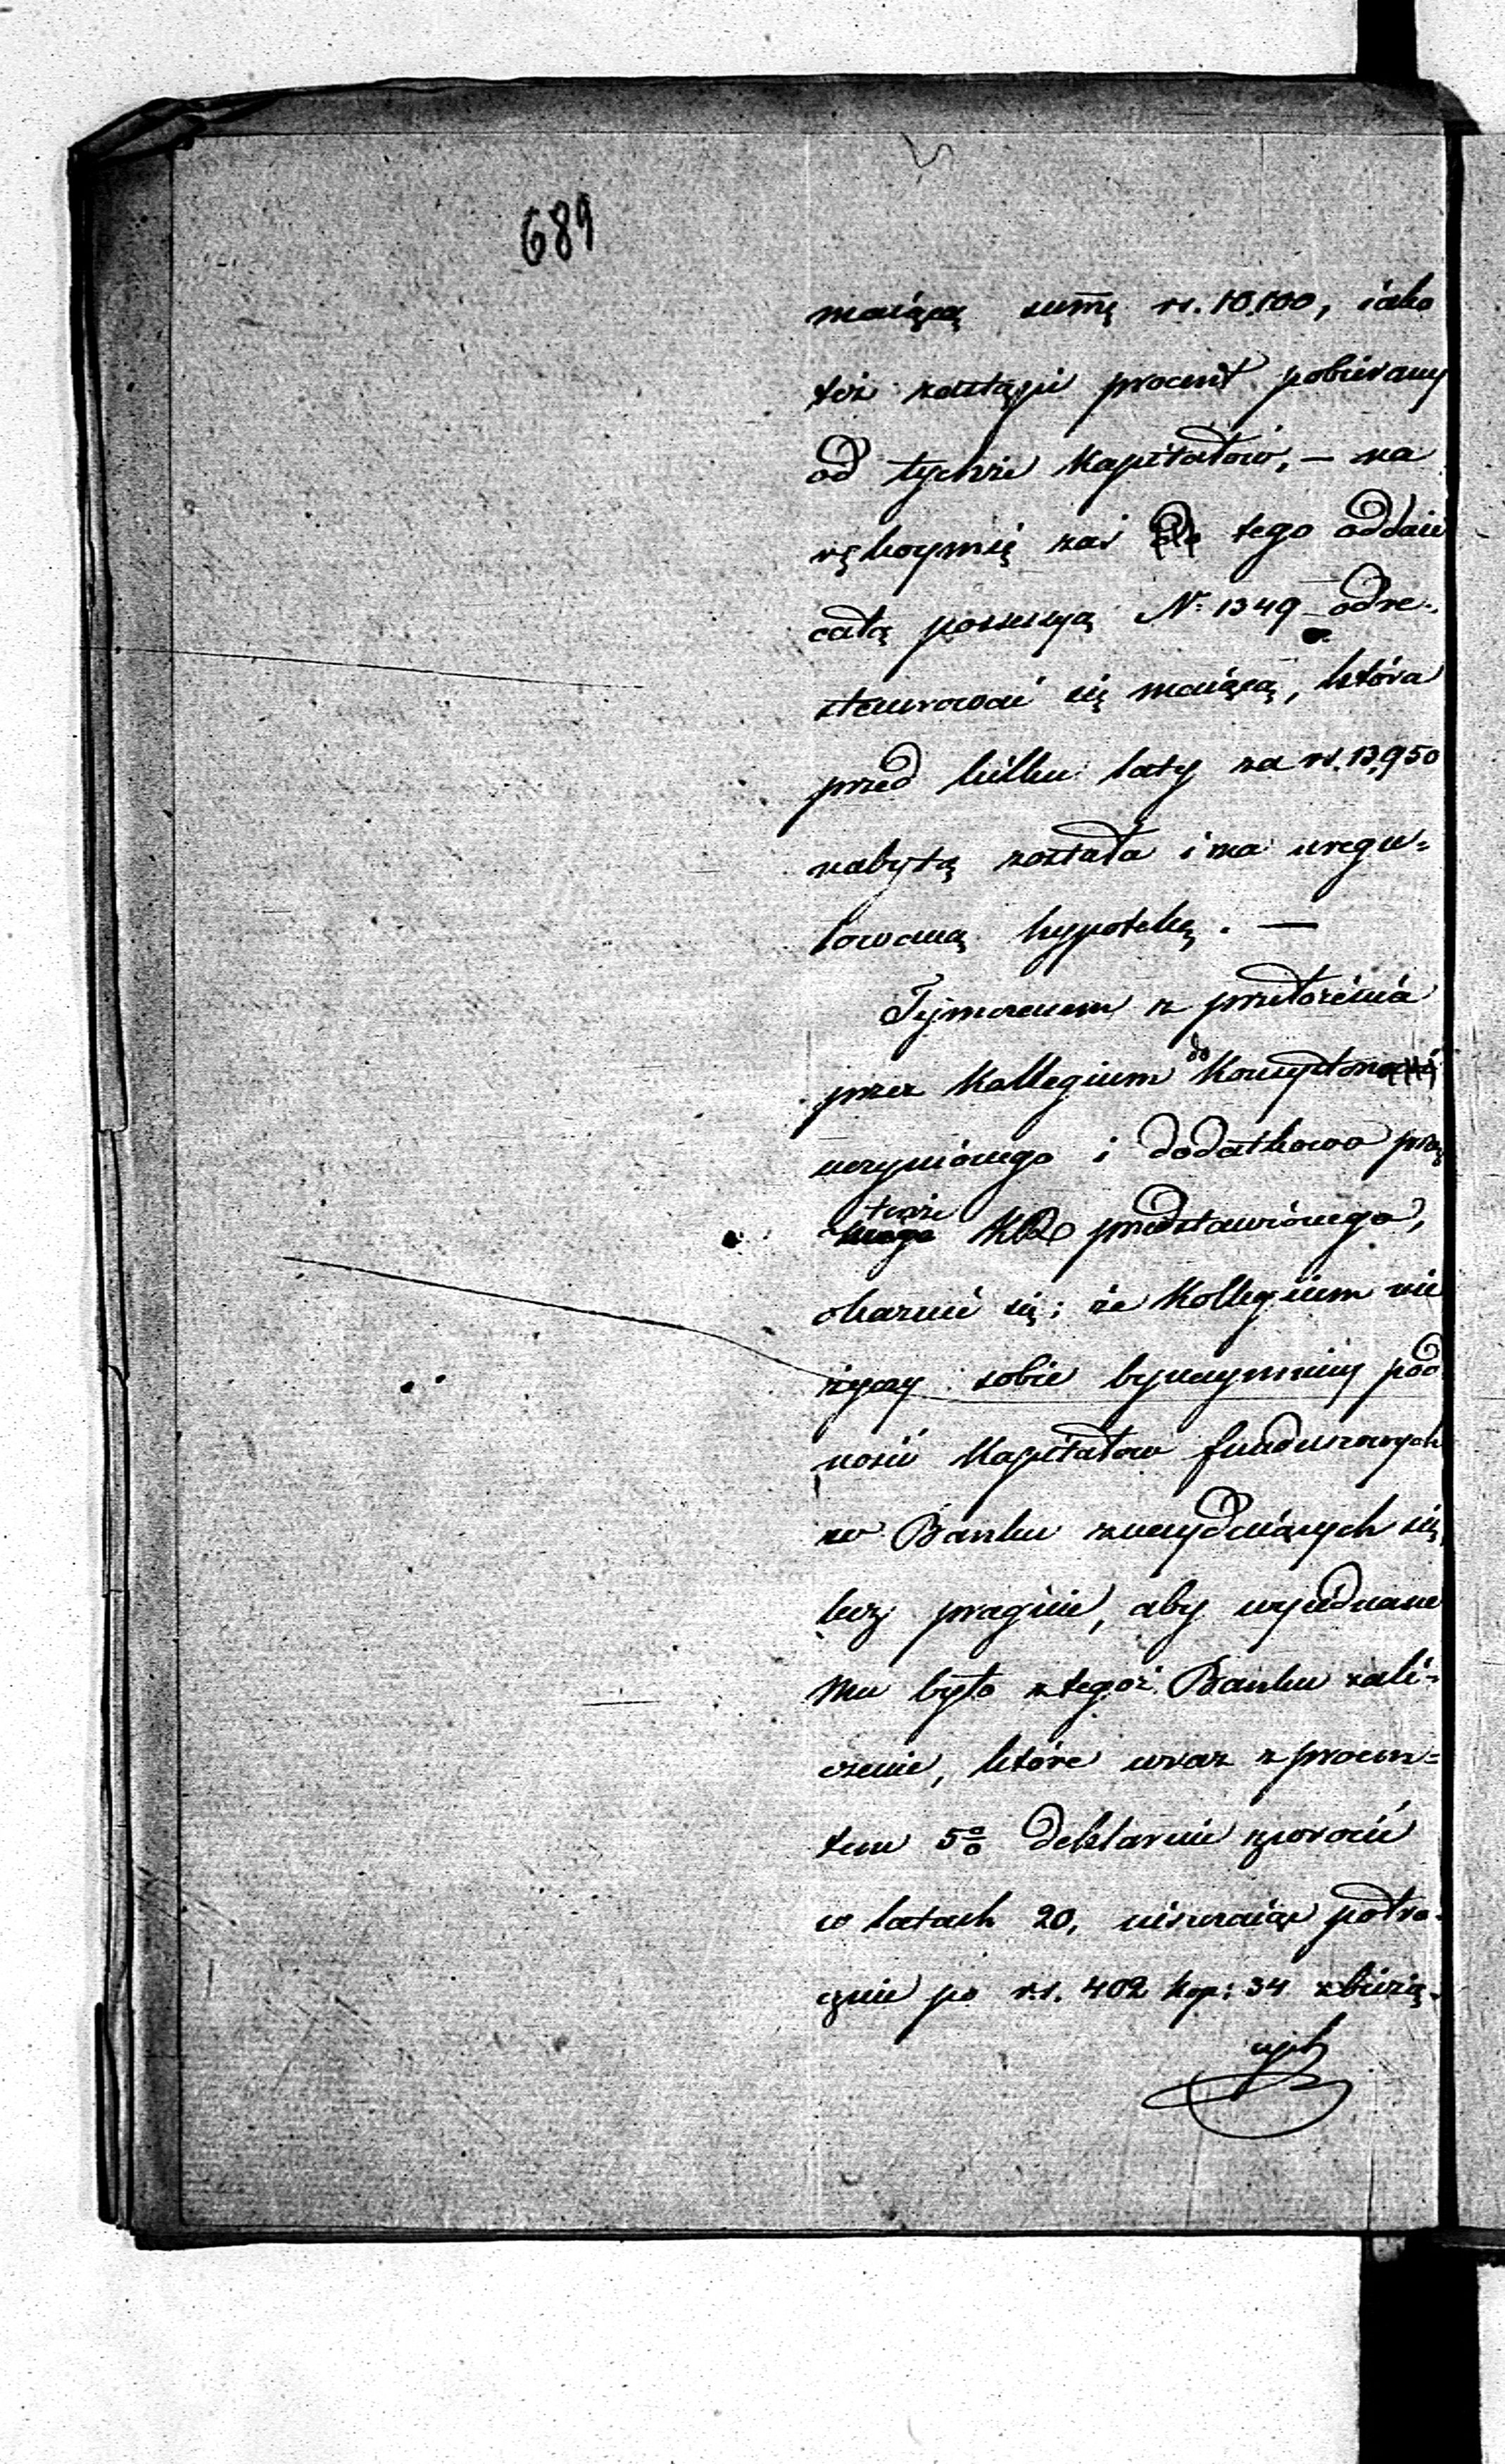 689
maiącą summę rs. 10,100, iako
też zastąpi procent pobierany
od tychże Kapitałów, — na
rękoymię zaś tego oddaie
całą possessyą N. 1349 odre-
staurować się maiącą, która
przed kilku laty za rs. 13,950
nabytą została i ma uregu=
lowaną hypotekę. —
Tymczasem z przełożenia
przez Kollegium do
uczynionego i dodatkowo przez
toże przedstawionego,
okazuie się; że Kollegium nie
życzy sobie bynaymniey pod
nosić Kapitałów funduszowych
w Banku znaydujących się,
lecz pragnie, aby wyiednane
mu było z tegoż Banku zali=
czenie, które wraz z procen=
tem 5% deklaruie zwrócić
w latach 20, uiszczaiąc półro-
cznie po rs. 402 kop: 34 z bieżą-
cych